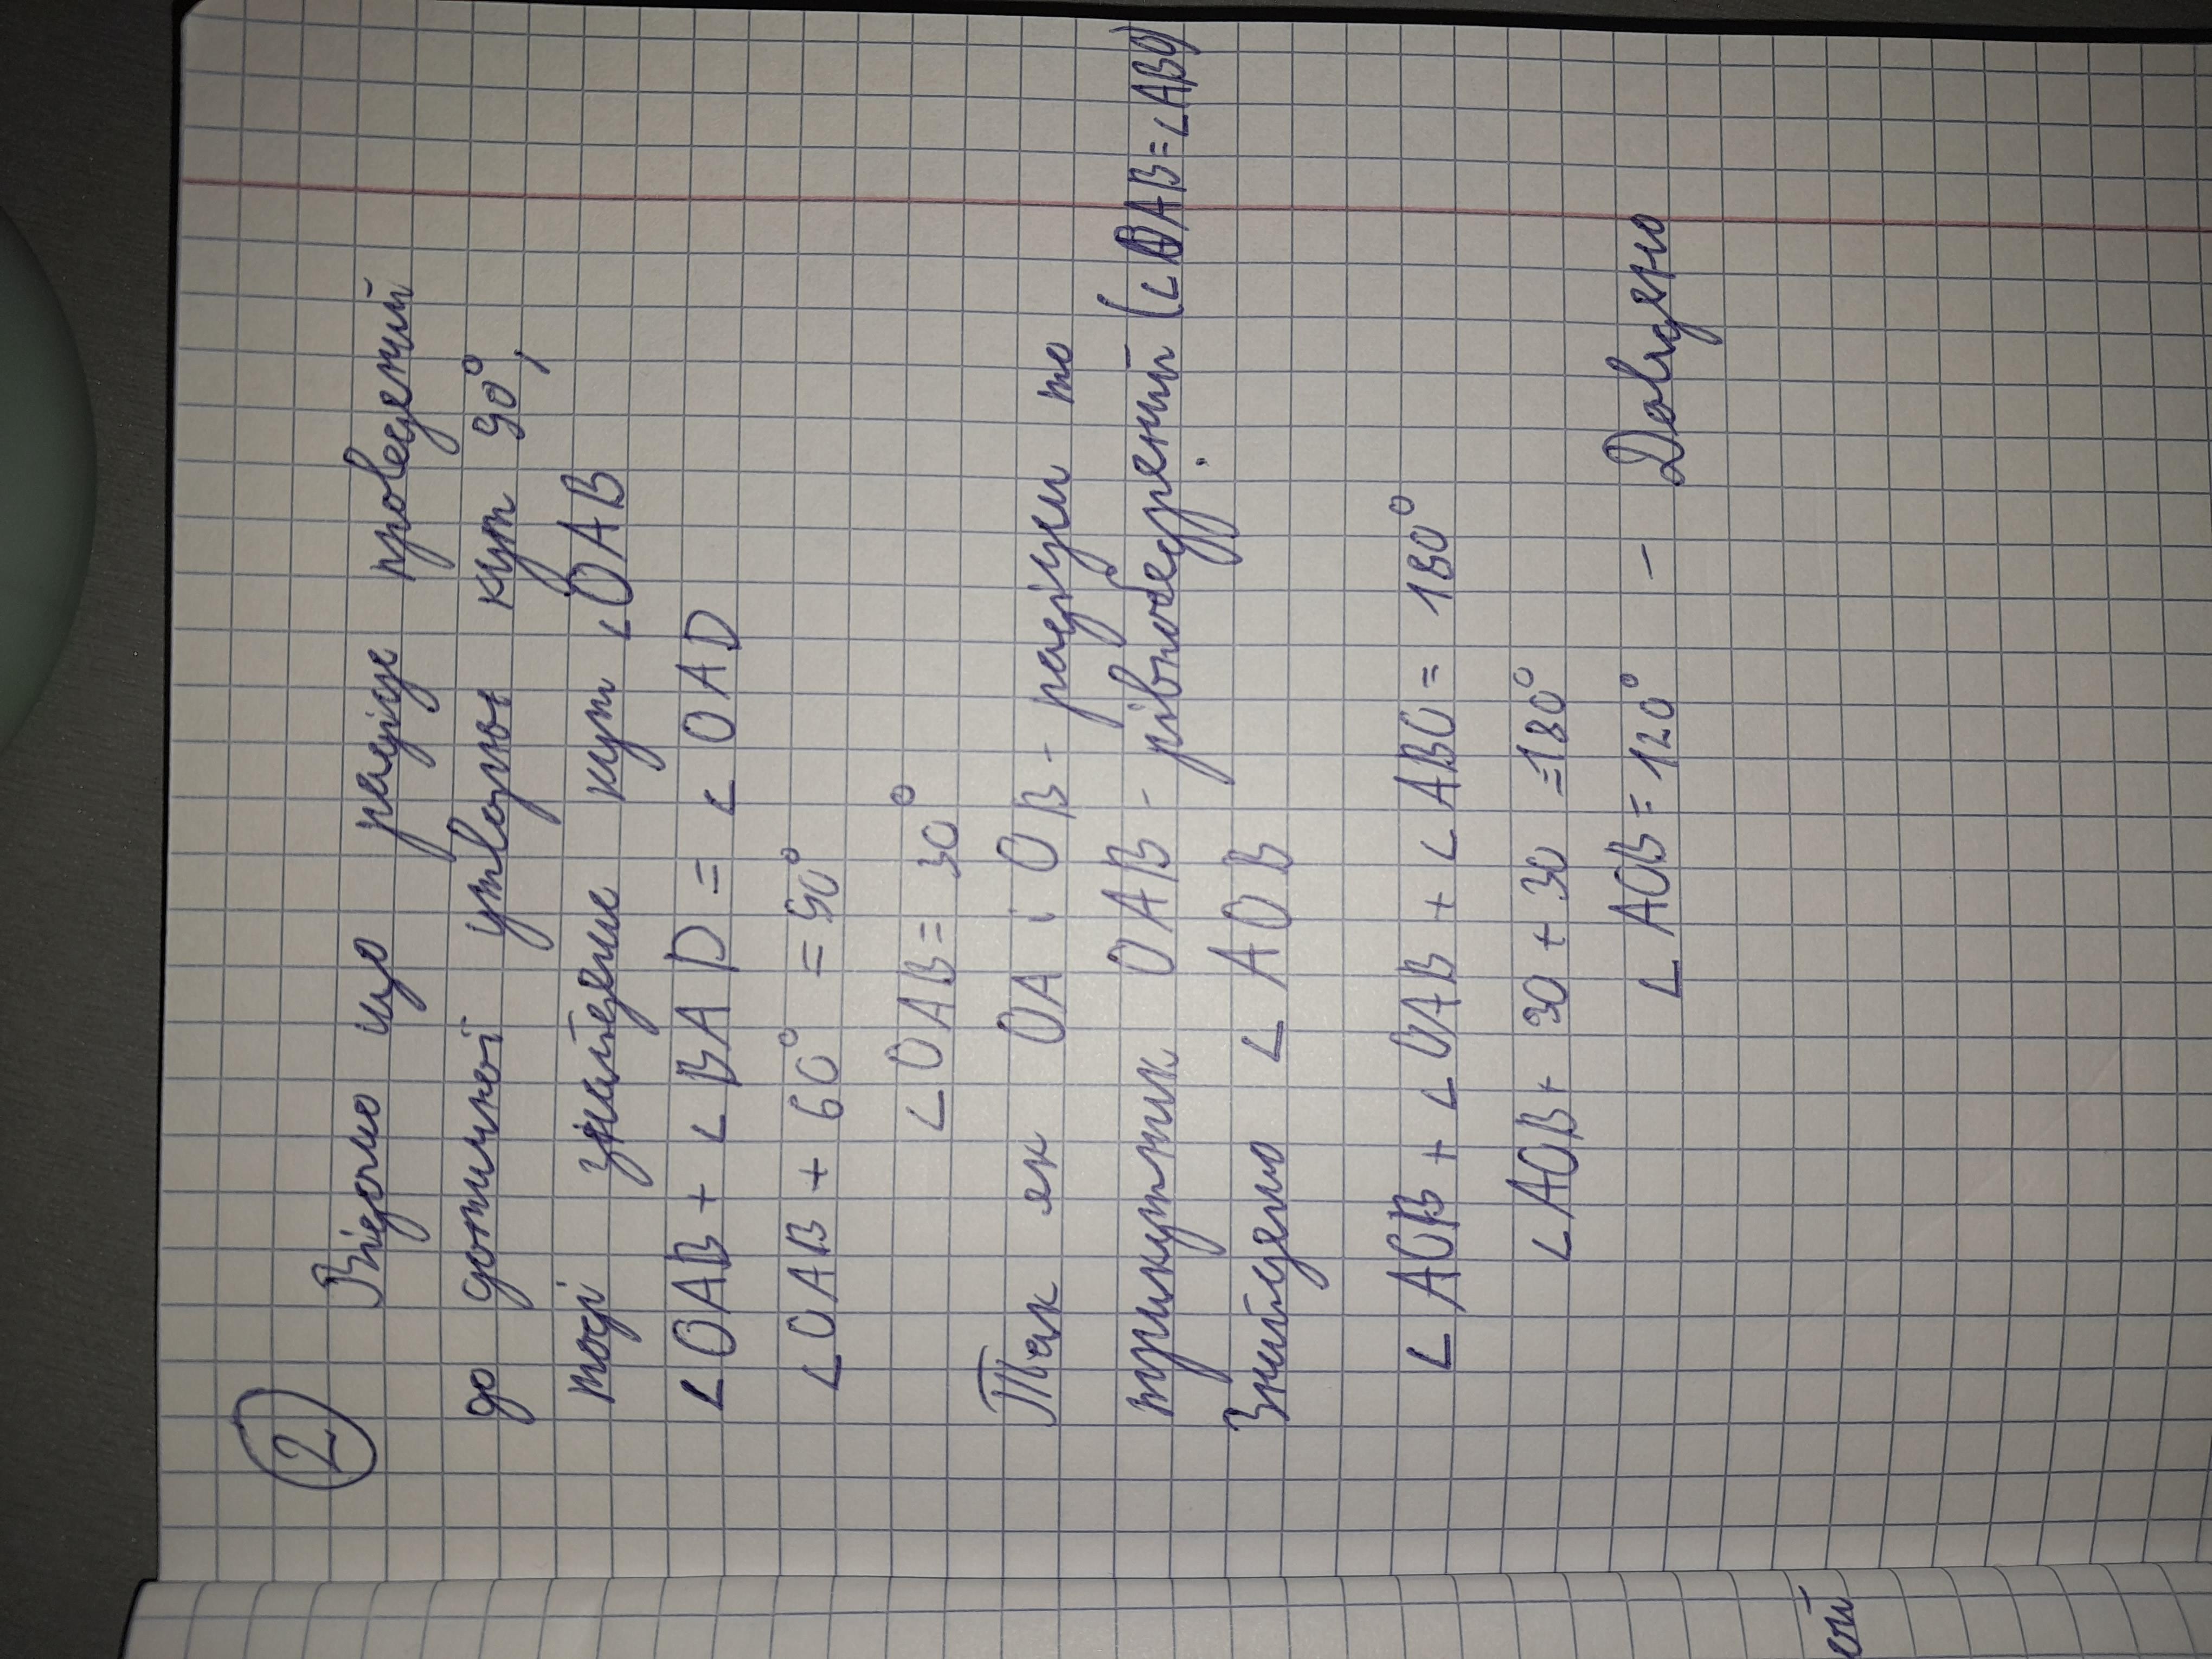 2
Відомо що радіус проведений
до дотичної утворює кут 90°,
тоді знайдемо кут ∠OAB
∠OAB + ∠BAD = ∠OAD
∠OAB + 60° = 90°
∠OAB = 30°
Так як OA і OB - радіуси то
трикутник OAB - рівнобедрений (∠OAB = ∠ABO)
Знайдемо ∠AOB
∠AOB + ∠OAB + ∠ABO = 180°
∠AOB + 30 + 30 = 180°
∠AOB = 120° - Доведено